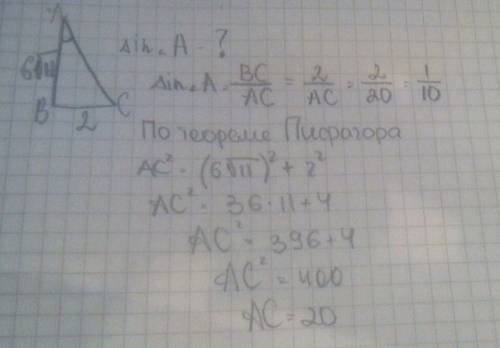 A
sin A - ?
6√11
sin A = BC/AC = 2/AC = 2/20 = 1/10
B 2 C
По теореме Пифагора
AC² = (6√11)² + 2²
AC² = 36·11+4
AC² = 396+4
AC² = 400
AC = 20